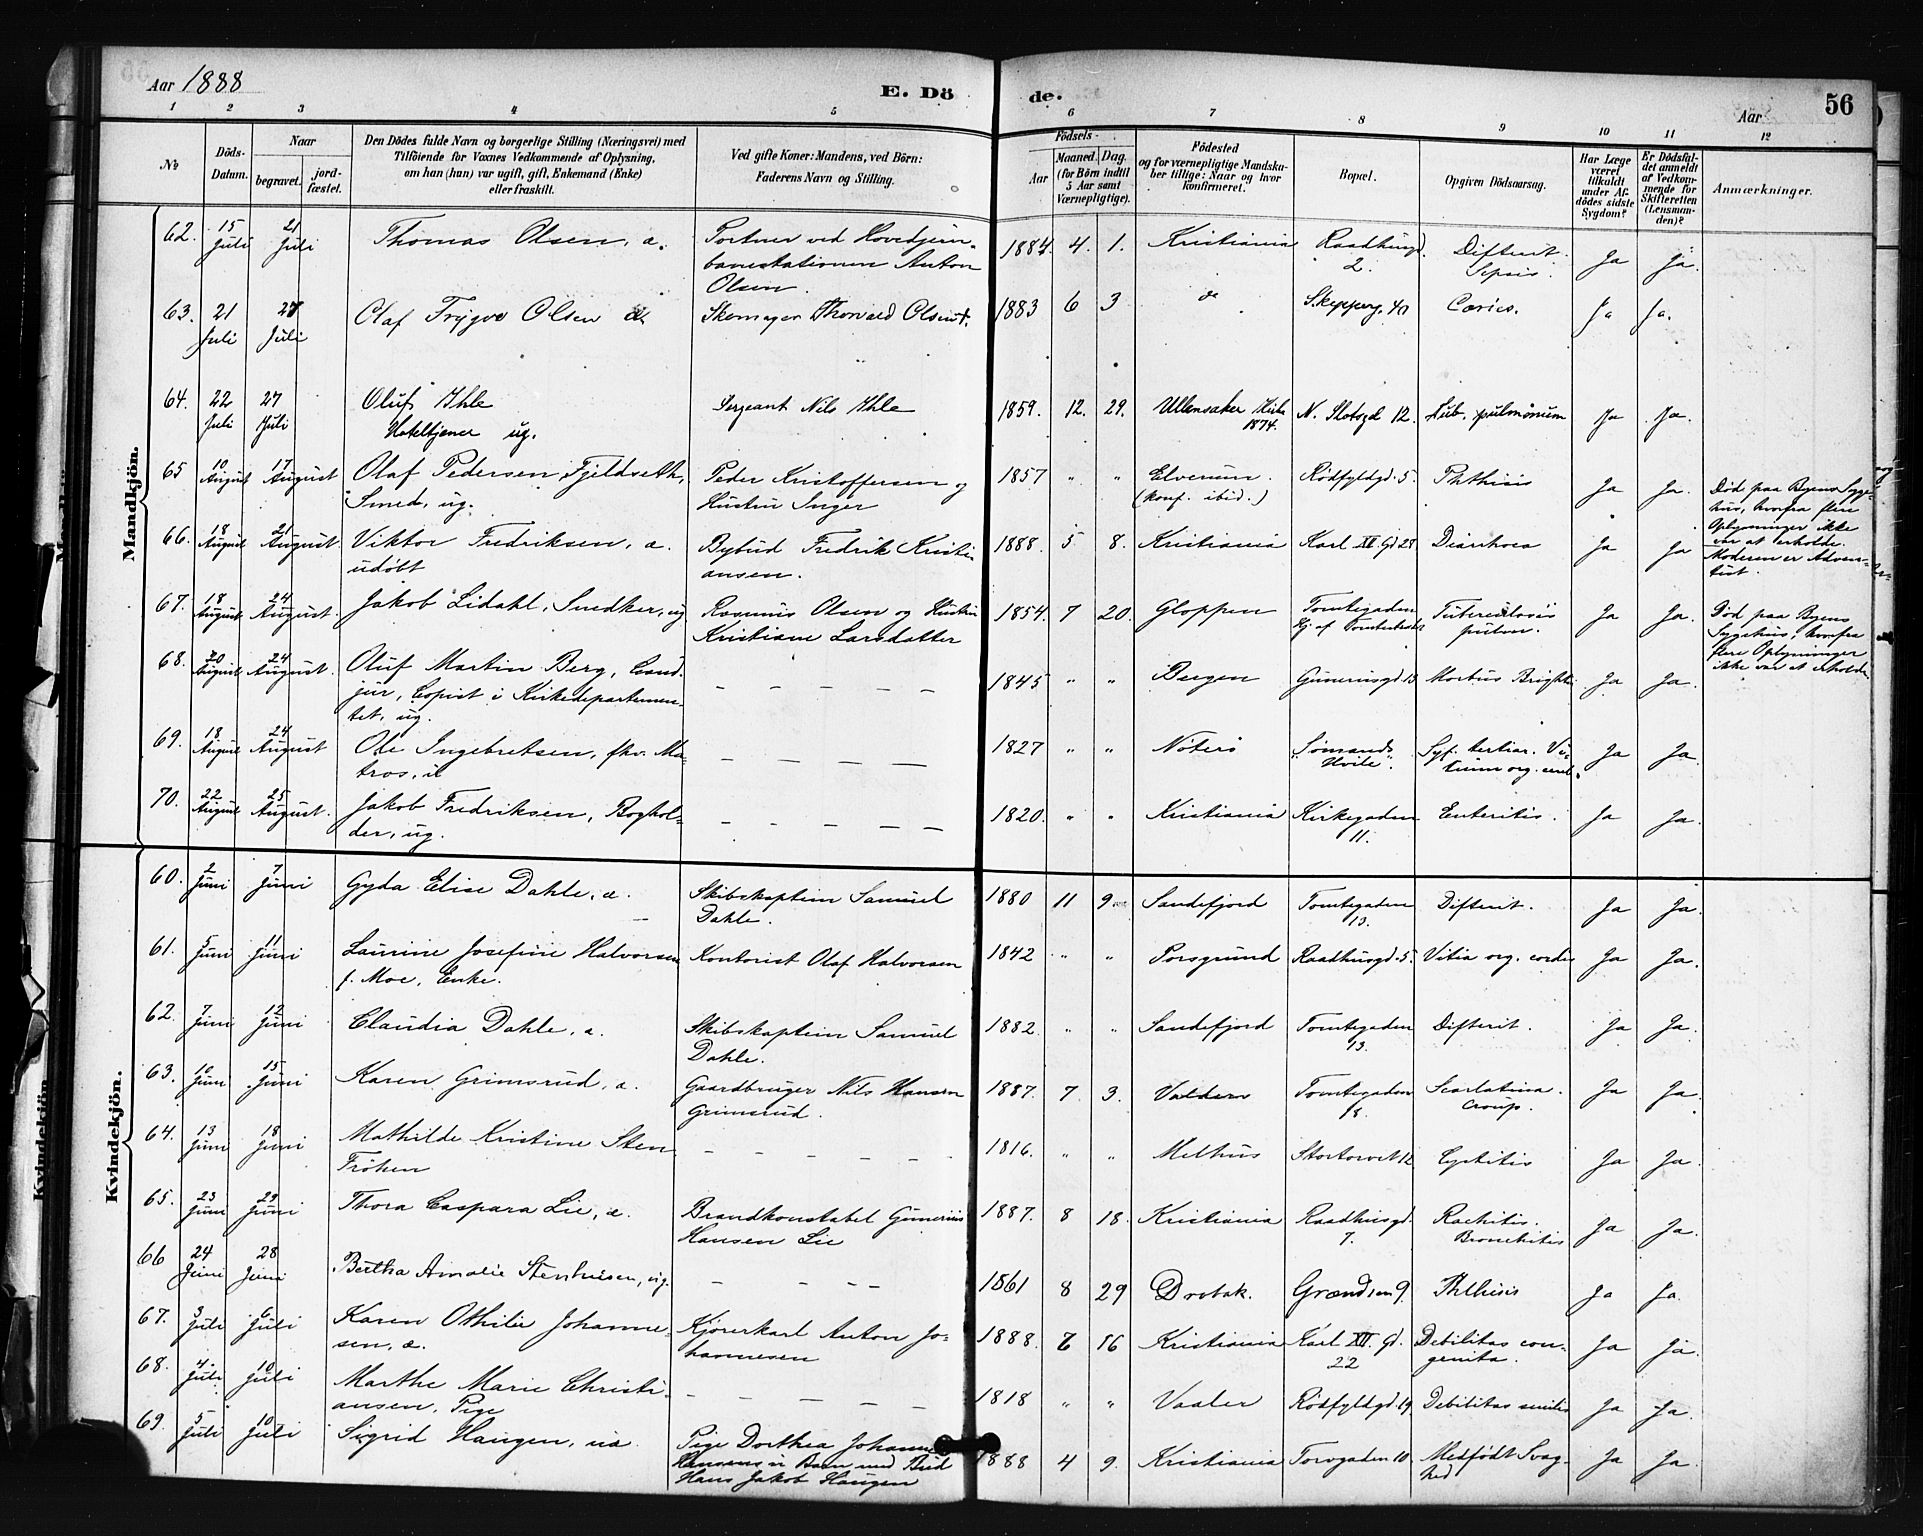 Aar 1888
E. Dö
de.
Aar
56
1 2 3 4 5 6 7 8 9 10 11 12
No
Döds-
Datum.
Naar
begravet.
jord-
fæstet.
Den Dödes fulde Navn og borgerlige Stilling (Næringsvei) med
Tilföiende for Voxnes Vedkommende af Oplysning,
om han (hun) var ugift, gift, Enkemand (Enke)
eller fraskilt.
Ved gifte Koner: Mandens, ved Börn:
Faderens Navn og Stilling.
Födsels-
Aar
Maaned. Dag.
(for Börn indtil
5 Aar samt
Værnepligtige).
Födested
og for værnepligtige Mandska-
ber tillige: Naar og hvor
konfirmeret.
Bopæl.
Opgiven Dödsaarsag.
Har Læge
været
tilkaldt
under Af-
dödes sidste
Sygdom?
Er Dödsfal-
det anmeldt
af Vedkom-
mende for
Skifteretten
(Lensman-
den)?
Anmærkninger.
Mandkjön.
62. 15 Juli 21 Juli Thomas Olsen, æ. Portner ved Hovedjern-
banestationen Anton
Olsen. 1884. 4. 1. Kristiania Raadhusgd. 2. Difterit. Sepsis. Ja Ja.
63. 21 Juli 27 Juli Olaf Trygve Olsen æ. Skomager Thorvald Olsen 1883 6 3 do Skipperg. 40 Caries. Ja Ja.
64. 22 Juli 27 Juli Oluf Ihle
Hoteltjener ug. Sergeant Nils Ihle 1859. 12. 29. Ullensaker Kirke 1874. N. Slotsgd 12. Tub. pulmonum Ja Ja.
65 10 August 17 August Olaf Pedersen Fjeldseth,
Smed, ug. Peder Kristoffersen og
Hustru Inger 1857 " " Elverum.
(konf. ibid.) Rödfyldgd. 5. Phthisis Ja Ja. Död paa Byens Syge-
hus, hvorfra flere
Oplysninger ikke
var at erholde.
66. 18 August 21 August Viktor Fredriksen, æ.
udöbt Bybud Fredrik Kristi-
ansen. 1888. 5 8. Kristiania Karl XII Gd 28. Diarrhoea Ja Ja Moderen er Adven-
tist.
67. 18 August 24 August Jakob Lidahl, Snedker, ug Rasmus Olsen og Hustru
Kristiane Larsdatter 1854. 7 20. Gloppen Tomtegaden Tuberculosis
pulm. Ja Ja. Död paa Byens
Sygehus, hvorfra
flere Oplysninger
ikke var at erholde
68. 20 August 24 August. Oluf Martin Berg, Cand.
jur, Copist i Kirkedepartemen-
tet, ug. — — — — — 1845 " " Bergen Gunerusgd 13 Morbus Brightii Ja Ja.
69. 18 August 24 August Ole Ingebretsen, fhv. Ma-
tros, — — — — — 1827 " " Nöterö "Sömands
Hvile". Syf. tertiar. Vi-
tium org. cord. Ja Ja.
70. 22 August 25 August. Jakob Fredriksen, Boghol-
der, ug. — — — — — 1820. " " Kristiania Kirkegaden
11. Enteritis. Ja Ja.
Kvindekjön.
60. 2 Juni 7 Juni Gyda Elise Dahle, æ. Skibskaptein Samuel
Dahle. 1880 11 9 Sandefjord Tomtegaden
13. Difterit. Ja Ja.
61. 5 Juni 11 Juni Laurine Josefine Halvorsen
f. Moe, Enke. Kontorist Olaf Halvorsen 1842 " " Porsgrund Raadhusgd. 5. Vitia org. cordis Ja Ja.
62. 7 Juni 12 Juni Claudia Dahle, æ. Skibskaptein Samuel
Dahle. 1882. " " Sandefjord Tomtegaden
13. Difterit. Ja Ja.
63. 10 Juni 15 Juni Karen Grimsrud, æ. Gaardbruger Nils Hansen
Grimsrud. 1887. 7 3. Valders Tomtegaden
18. Scarlatina.
Croup. Ja Ja.
64. 13 Juni 18 Juni Mathilde Kristine Sten
Fröken — — — — — 1816. " " Melhus Stortorvet 12 Cystitis Ja Ja.
65. 23 Juni 29 Juni Thora Caspara Lie, æ. Brandkonstabel Gunerius
Hansen Lie 1887. 8 18. Kristiania Raadhusgd.
7. Rachitis.
Bronchitis Ja Ja.
66 24 Juni 28 Juni Bertha Amalie Stenhusen, ug. — — — — 1861 8 29 Drobak. Grændsen 9. Phthisis Ja Ja.
67. 3 Juli 6 Juli Karen Othilie Johanne-
sen, æ. Kjörerkarl Anton Jo-
hannesen 1888. 6 16 Kristiania Karl XII. Gd.
22 Debilitas con-
genita. Ja Ja.
68. 4. Juli 10 Juli Marthe Marie Christi-
ansen, Pige — — — — — 1818 " " Vaaler Rödfyldgd. 19 Debilitas senilis Ja Ja.
69. 5 Juli 10 Juli Sigrid Haugen, uæ. Pige Dorthea Johanne
Hansens Barn med Bud
Hans Jakob Haugen 1888 4 9. Kristiania Torvgaden 10 Medfödt Svag-
hed Ja Ja.